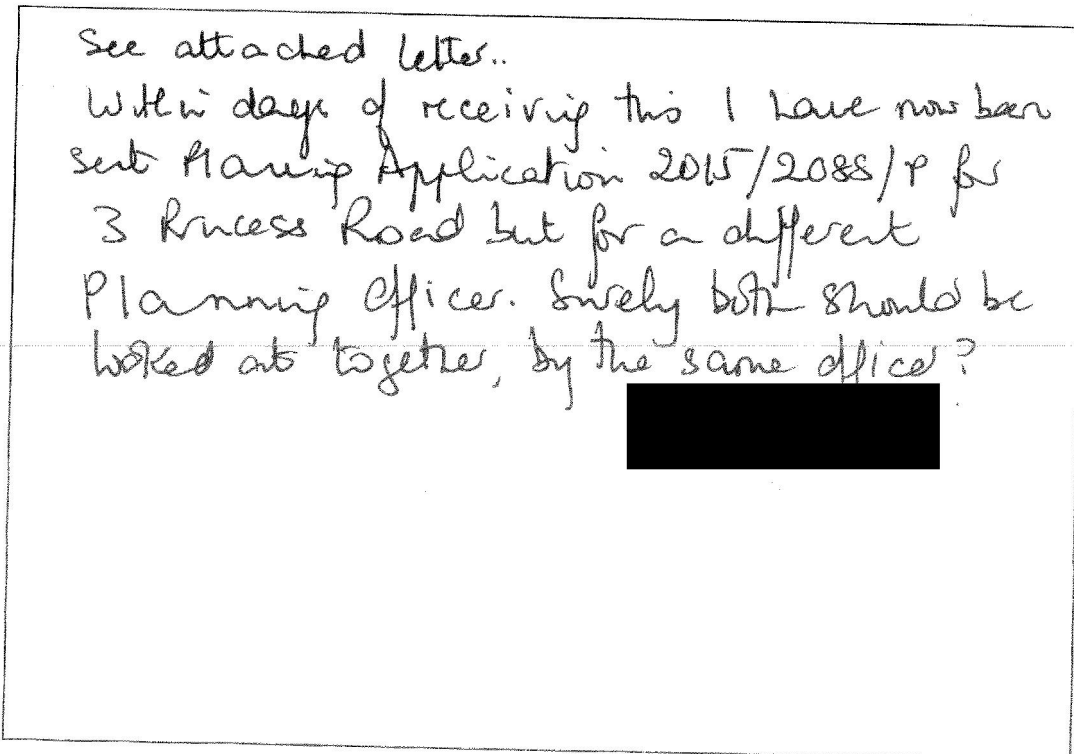 See attached letter..
Within days of receiving this I have now been
sent Planning Application 2015/2088/P for
3 Princess Road but for a different
Planning Officer. Surely both should be
looked at together, by the same officer?